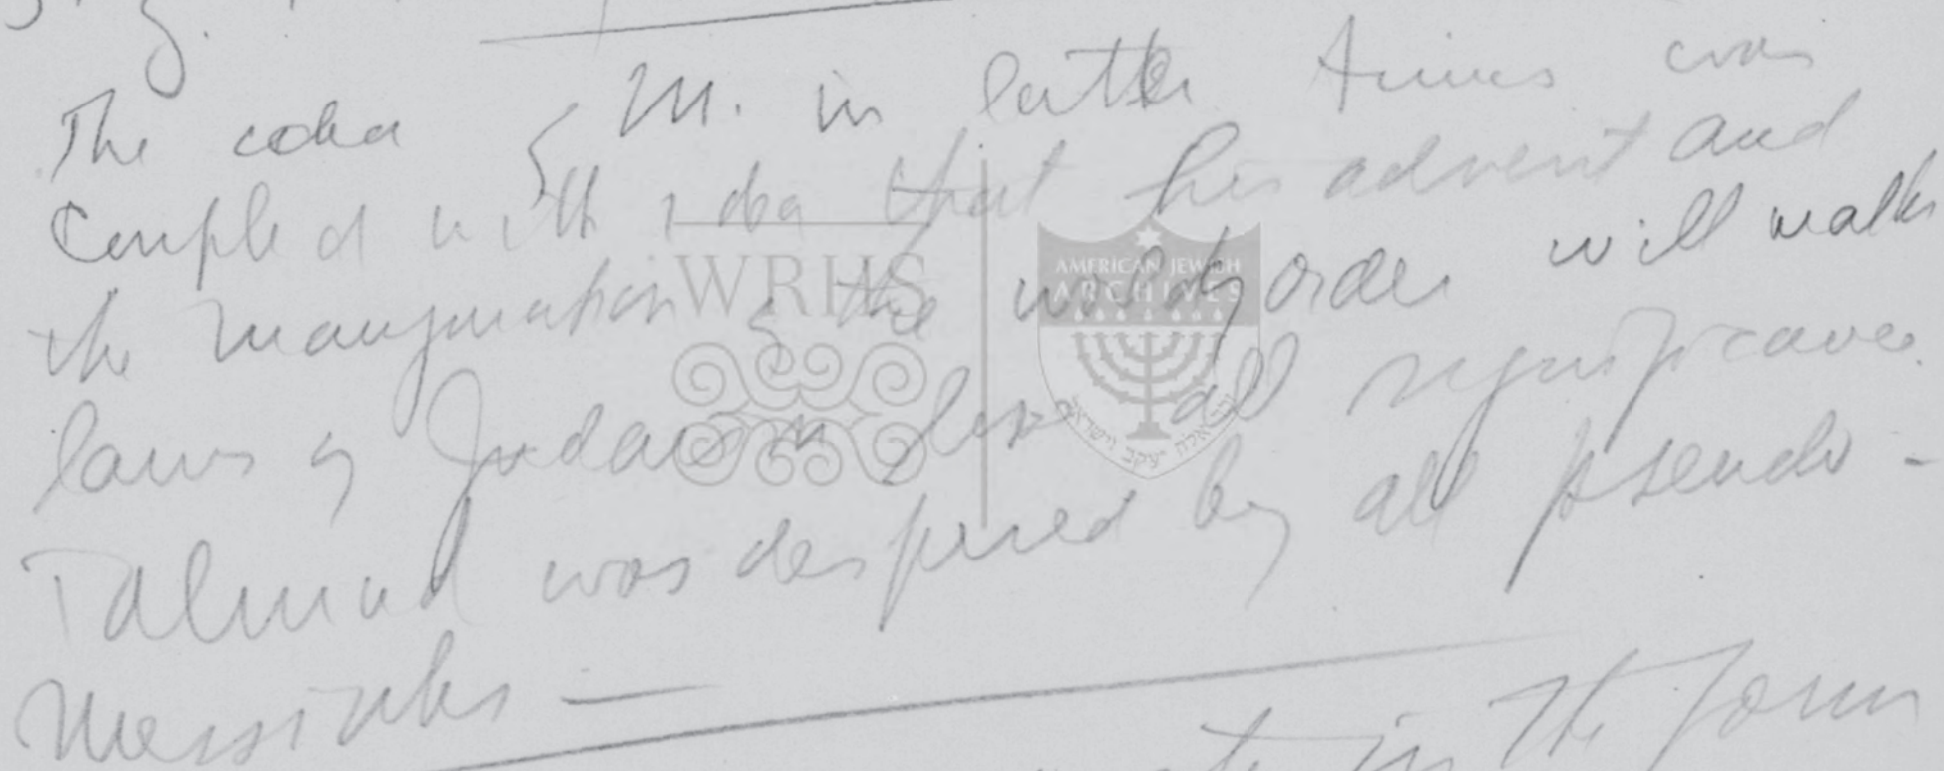 The idea of M. in latter times was
Coupled with idea that his advent and
the inauguration of the world order will make
laws of Judaism lose all significance.
Talmud was despised by all pseudo-
Messiahs —
in the form
WRHS
AMERICAN JEWISH
ARCHIVES